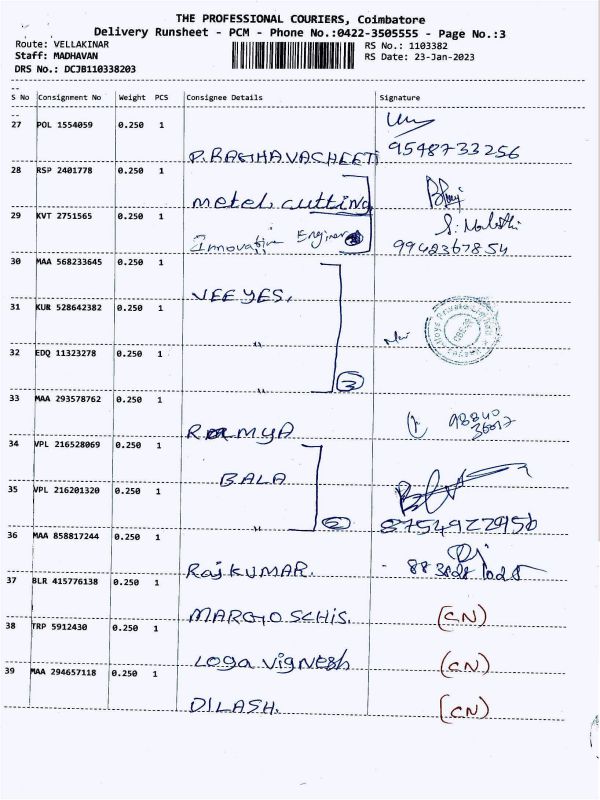 THE PROFESSIONAL COURIERS, Coimbatore
Delivery Runsheet - PCM - Phone No.:0422-3505555 - Page No.:3
Route: VELLAKINAR RS No.: 1103382
Staff: MADHAVAN RS Date: 23-Jan-2023
DRS No.: DCJB110338203
--
S No Consignment No Weight PCS Consignee Details Signature
--
27 POL 1554059 0.250 1
P. RAGHAVACHEETI 9548733256
28 RSP 2401778 0.250 1
metel, cutting
29 KVT 2751565 0.250 1
Innovative Engineer 9942367854
30 MAA 568233645 0.250 1
VEE YES,
31 KUR 528642382 0.250 1
"
32 EDQ 11323278 0.250 1
" 3
33 MAA 293578762 0.250 1
RAMYA 98840
34 VPL 216528069 0.250 1
BALA
35 VPL 216201320 0.250 1
" 8754922956
36 MAA 858817244 0.250 1
Raj KUMAR.
37 BLR 415776138 0.250 1
MARGIO SCHIS. (CN)
38 TRP 5912430 0.250 1
Loga Vignesh (CN)
39 MAA 294657118 0.250 1
DILASH. (CN)